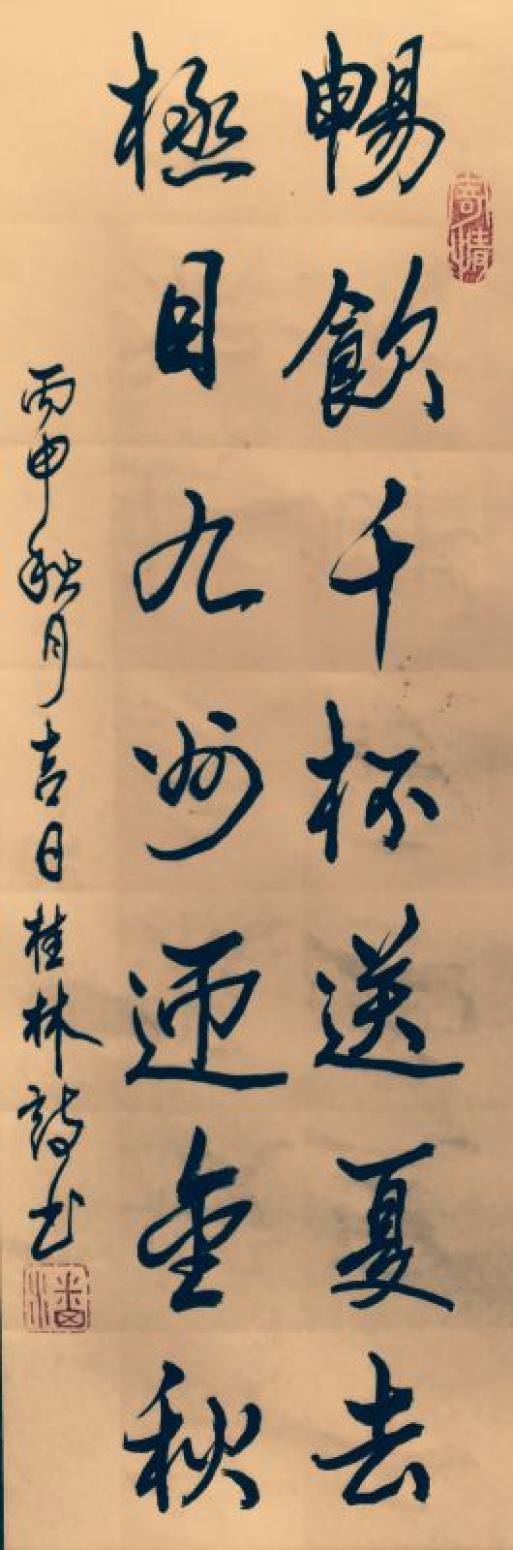 暢飲千杯送夏去
極目九州迊金秋
丙申秋月吉日桂林詩书
寄情
潘